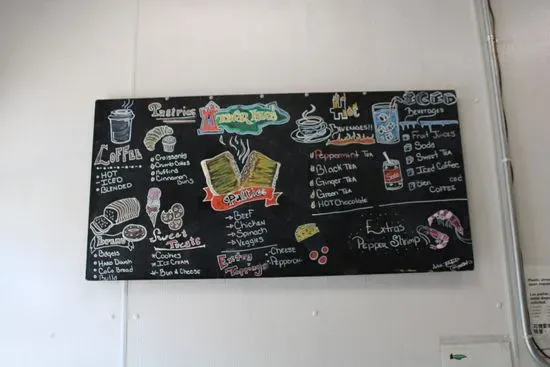 COFFEE
HOT
ICED
BLENDED
Bread
Bagels
Hard Dough
CoCo Bread
Bulla
Pastries
Croissants
Crumb Cakes
Muffins
Cinnamon
Buns
Sweet
Treats
Cookies
ICE CREAM
Bun & Cheese
Patties
Beef
Chicken
Spinach
Veggies
Extra
Toppings
Cheese
Pepperoni
Hot
BEVERAGES!!
Peppermint TEA
Black Tea
Ginger Tea
Green Tea
HOT Chocolate
ICED
Beverages
Fruit Juices
Soda
Sweet Tea
Iced Coffee
COFFEE
Extras
Pepper Shrimp